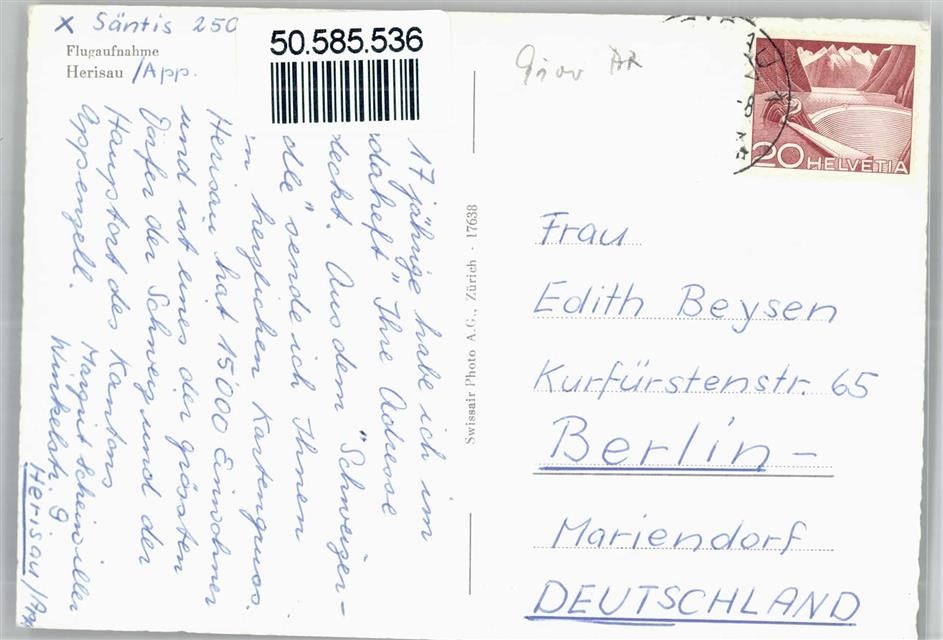 x Säntis 250
Flugaufnahme
Herisau /App.
50.585.536
17 jährige habe ich im
"daheft" Ihre Adresse
deckt. Aus dem "Schweizer-
delle" sende ich Ihnen
herzlichen Kartengruss.
Herisau hat 15000 Einwohner
und ist eines der grössten
Dörfer der Schweiz und der
Hauptort des Kantons
Appenzell.
Margrit Scheiwiller
Winkelstr. 9
Herisau/App
Swissair Photo A.G., Zürich · 17638
AR
20 HELVETIA
Frau
Edith Beysen
Kurfürstenstr. 65
Berlin -
Mariendorf
DEUTSCHLAND